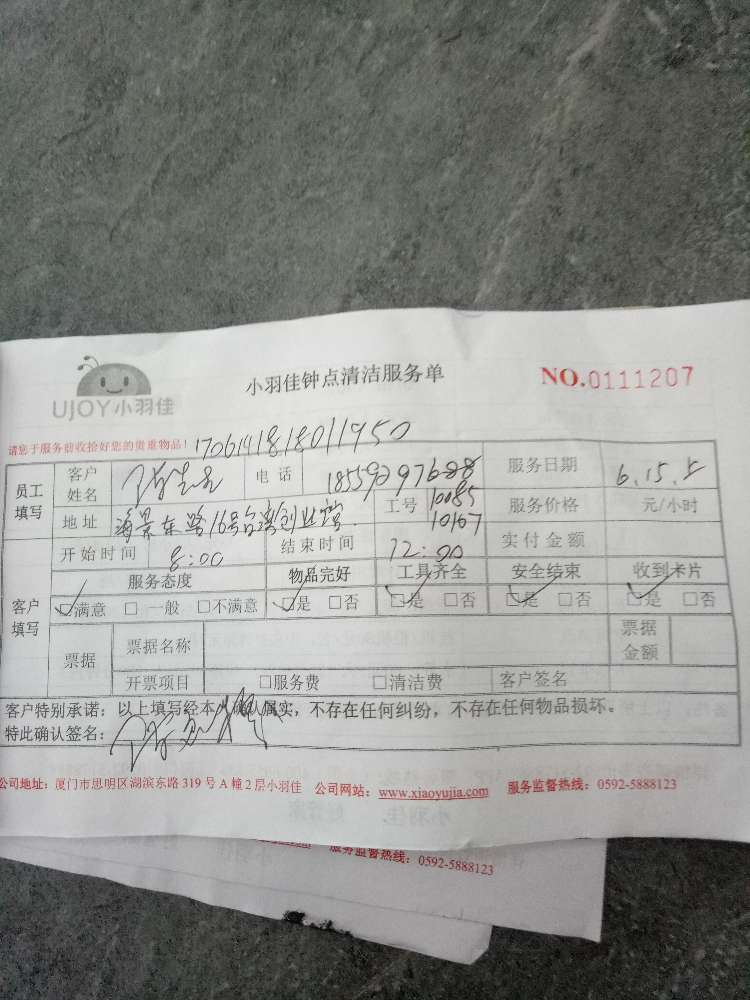 UJOY小羽佳
小羽佳钟点清洁服务单
NO.0111207
请您于服务前收拾好您的贵重物品！ 1706141818011950
员工填写 客户姓名 电话 服务日期 6.15.上
地址 海景东路16号台湾创业馆 工号 10085 10167 服务价格 元/小时
开始时间 8:00 结束时间 12:00 实付金额
客户填写 服务态度 物品完好 工具齐全 安全结束 收到卡片
☑满意 □一般 □不满意 ☑是 □否 ☑是 □否 ☑是 □否 ☑是 □否
票据 票据名称 票据金额
开票项目 □服务费 □清洁费 客户签名
客户特别承诺：以上填写经本人确认属实，不存在任何纠纷，不存在任何物品损坏。
特此确认签名：
公司地址：厦门市思明区湖滨东路319号A幢2层小羽佳 公司网站：www.xiaoyujia.com 服务监督热线：0592-5888123
服务监督热线：0592-5888123